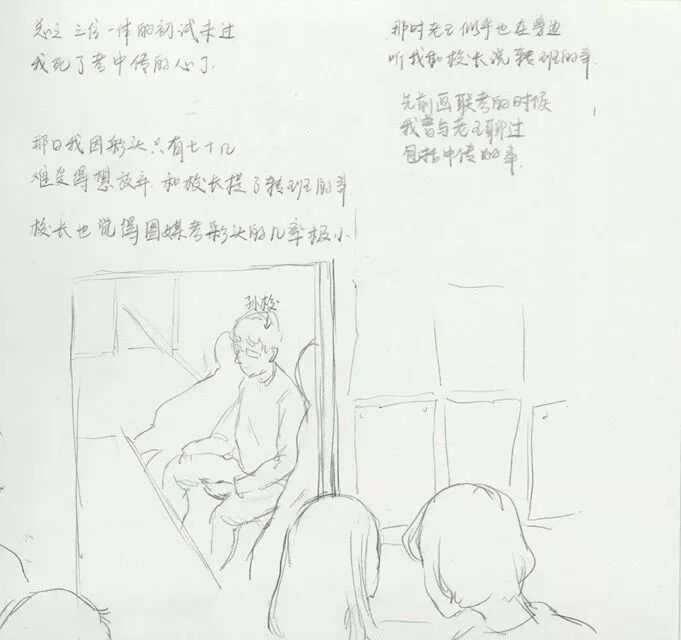 总之 三位一体的初试未过
我死了考中传的心了.
那日我因彩头只有七十几
难受得想放弃. 和校长提了转班的事
校长也觉得图媒考彩头的几率极小
那时老王似乎也在旁边
听我和校长说转班的事.
先前画联考的时候
我曾与老王聊过
包括中传的事.
孙校